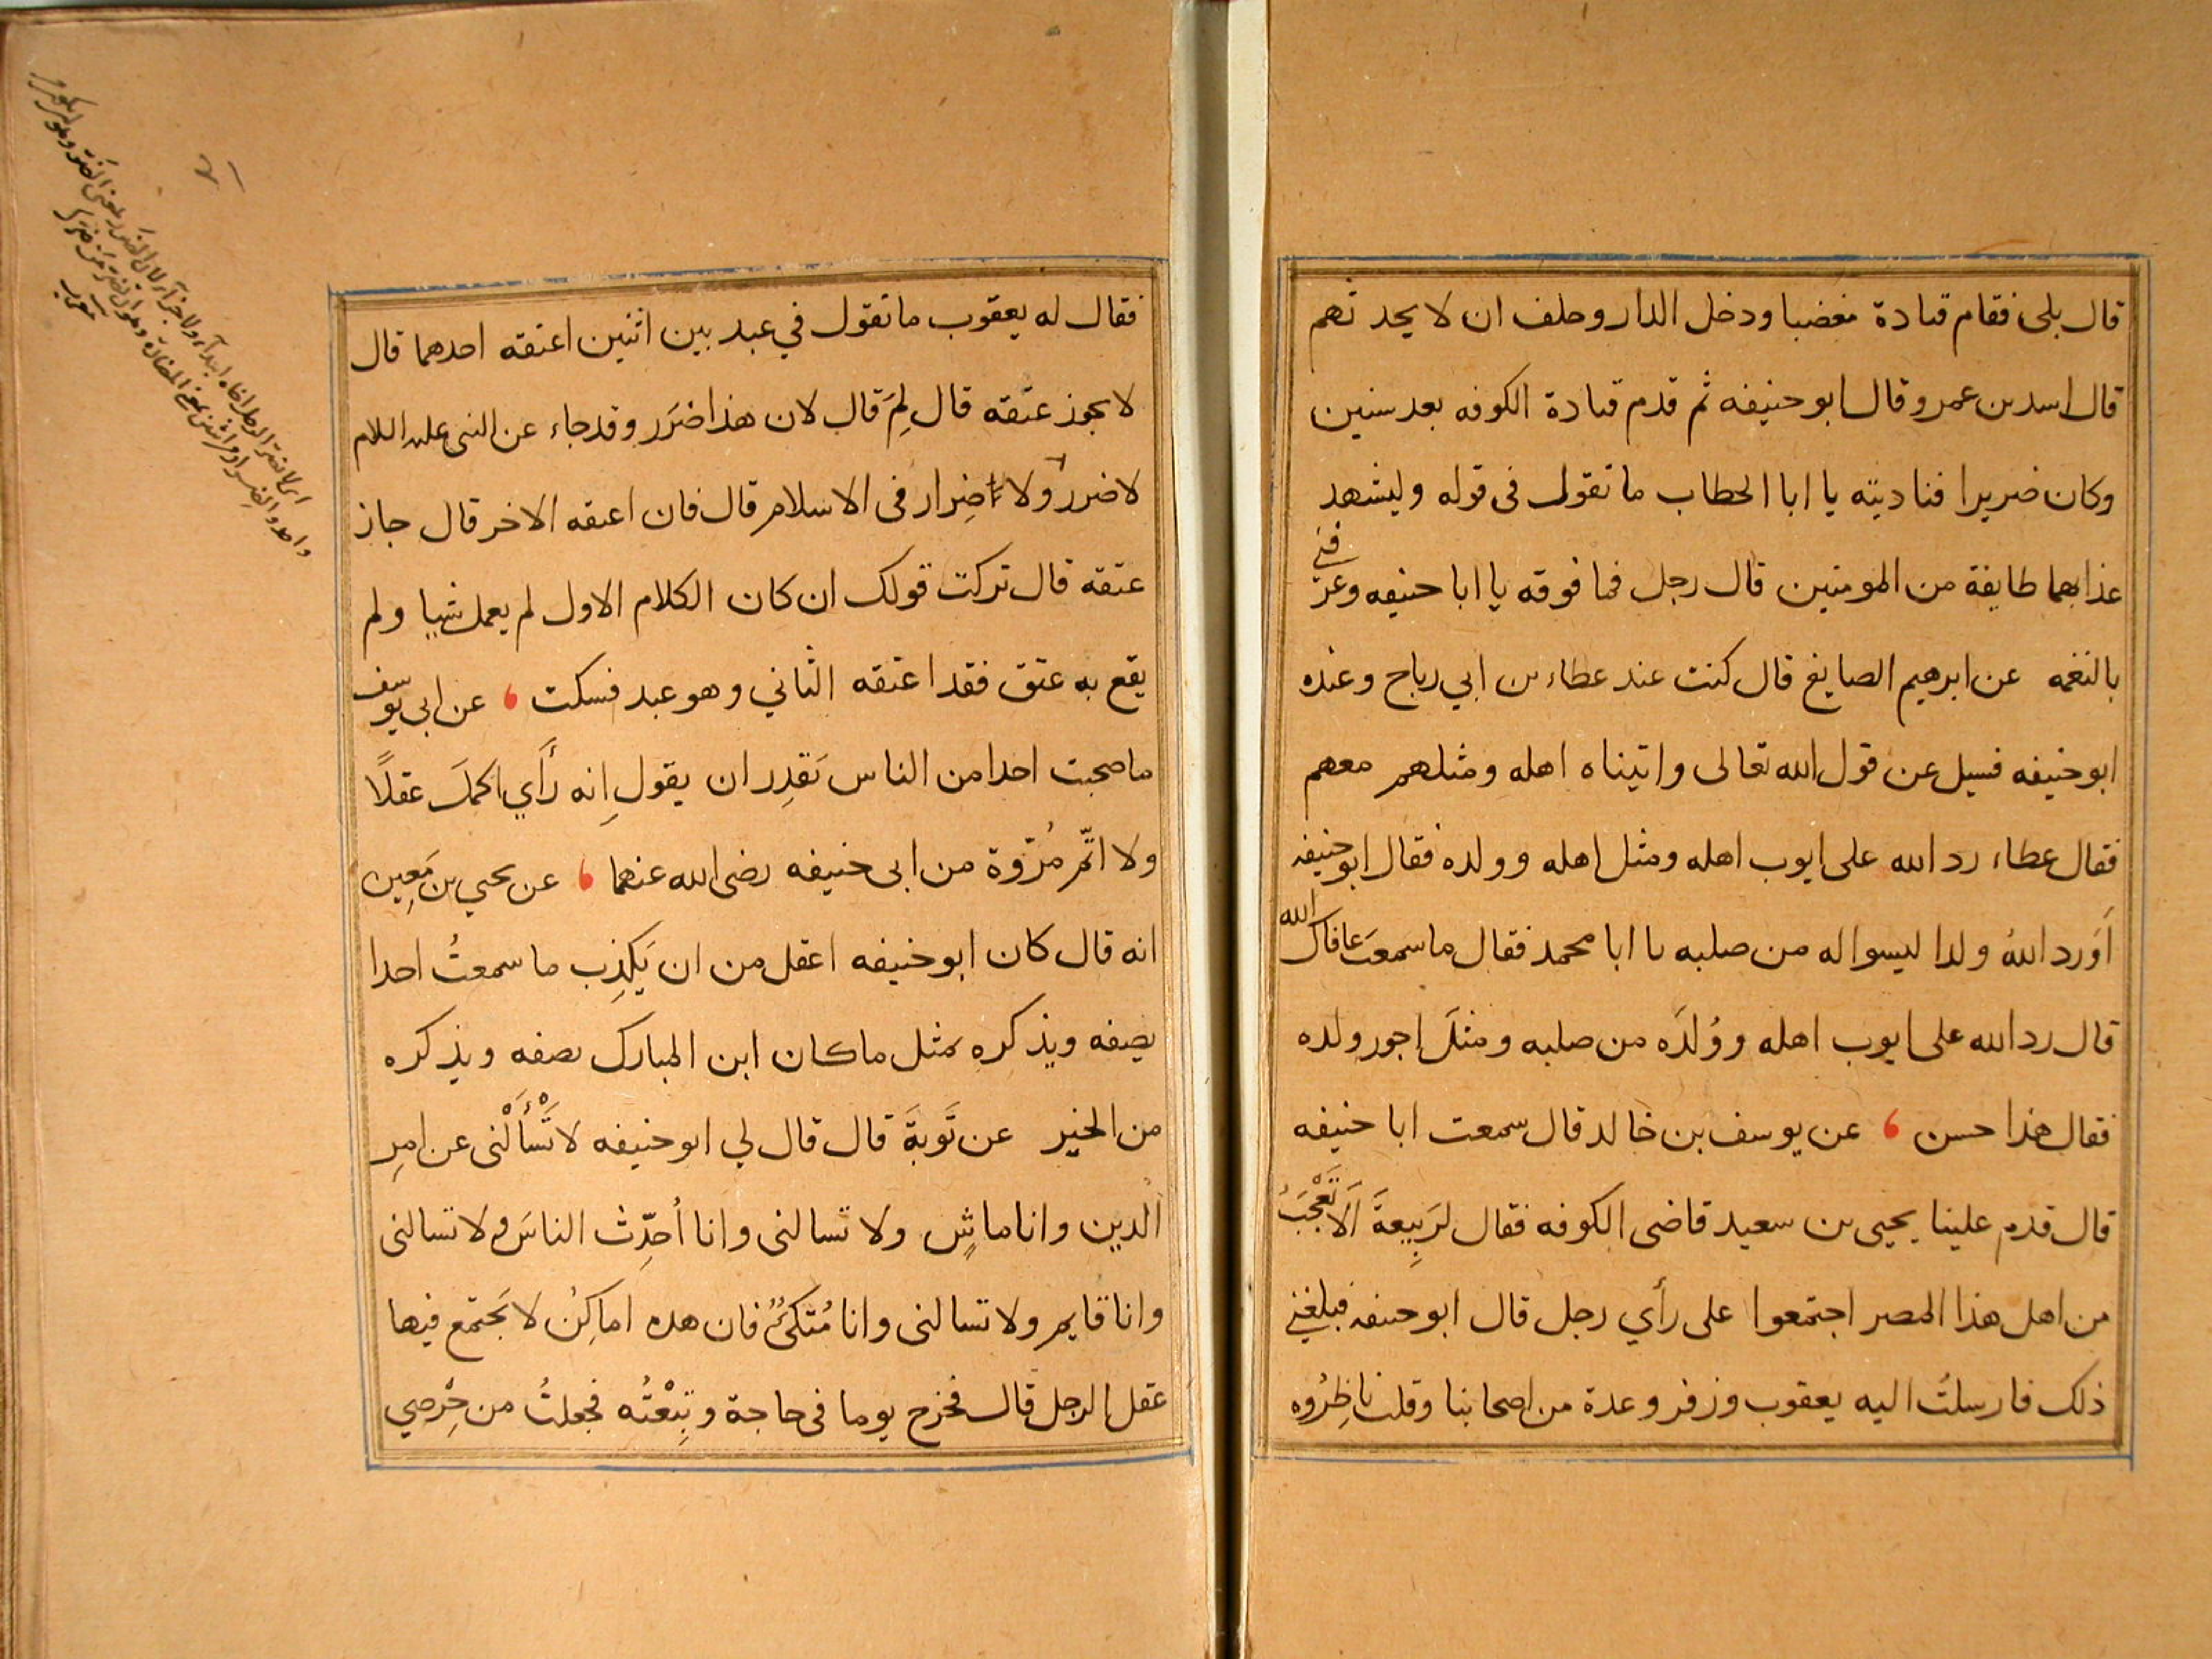 قال بلى فقام قتادة مغضبا ودخل الدار وحلف ان لا يحدثهم
قال اسد بن عمرو قال ابو حنيفه ثم قدم قتادة الكوفه بعد سنين
وكان ضريرا فناديته يا ابا الخطاب ما تقول فى قوله وليشهد
عذابهما طايفة من المومنين قال رجل فما فوقه يا ابا حنيفه وعرفني
بالنغمه عن ابرهيم الصايغ قال كنت عند عطاء بن ابي رباح وعنده
ابو حنيفه فسيل عن قول الله تعالى واتيناه اهله ومثلهم معهم
فقال عطاء رد الله على ايوب اهله ومثل اهله وولده فقال ابو حنيفه
أوَرد اللهُ ولدا ليسوا له من صلبه يا ابا محمد فقال ما سمعتَ عافاك الله
قال رد الله على ايوب اهله ووُلدَه من صلبه ومثلَ اجور ولده
فقال هذا حسن ، عن يوسف بن خالد قال سمعت ابا حنيفه
قال قدم علينا يحيى بن سعيد قاضى الكوفه فقال لرَبِيعةَ ألَا تَعْجَبُ
من اهل هذا المصر اجتمعوا على رأي رجل قال ابو حنيفه فبلغني
ذلك فارسلتُ اليه يعقوب وزفر وعدة من اصحابنا وقلت ناظِرُوه
فقال له يعقوب ما تقول في عبد بين اثنين اعتقه احدهما قال
لا يجوز عتقه قال لِمَ قال لان هذا ضَرَر وقد جاء عن النبى عليه السلام
لا ضرر ولا اضِرار فى الاسلام قال فان اعتقه الاخر قال جاز
عتقه قال تركت قولك ان كان الكلام الاول لم يعمل شيا ولم
يقع به عتق فقد اعتقه الثاني وهو عبد فسكت ، عن ابى يوسف
ما صحبت احدا من الناس يَقدِر ان يقول إنه رَأَي اكملَ عقلًا
ولا اتمّ مُرُوّة من ابى حنيفه رضى الله عنهما ، عن يحيي بن مَعِين
انه قال كان ابو حنيفه اعقل من ان يَكذِب ما سمعتُ احدا
يصفه ويذكره بمثل ما كان ابن المبارك يصفه ويذكره
من الخير عن تَوبَةَ قال قال لي ابو حنيفه لا تَسْأَلْنى عن امرِ
الدين وانا ماشٍ ولا تسالنى وانا أحدِّث الناسَ ولا تسالنى
وانا قايم ولا تسالنى وانا مُتكئٌ فان هذه اماكِنُ لا يَجتمع فيها
عقل الرجل قال فخرج يوما فى حاجة وتبِعْتُه فجعلتُ من حِرْصي